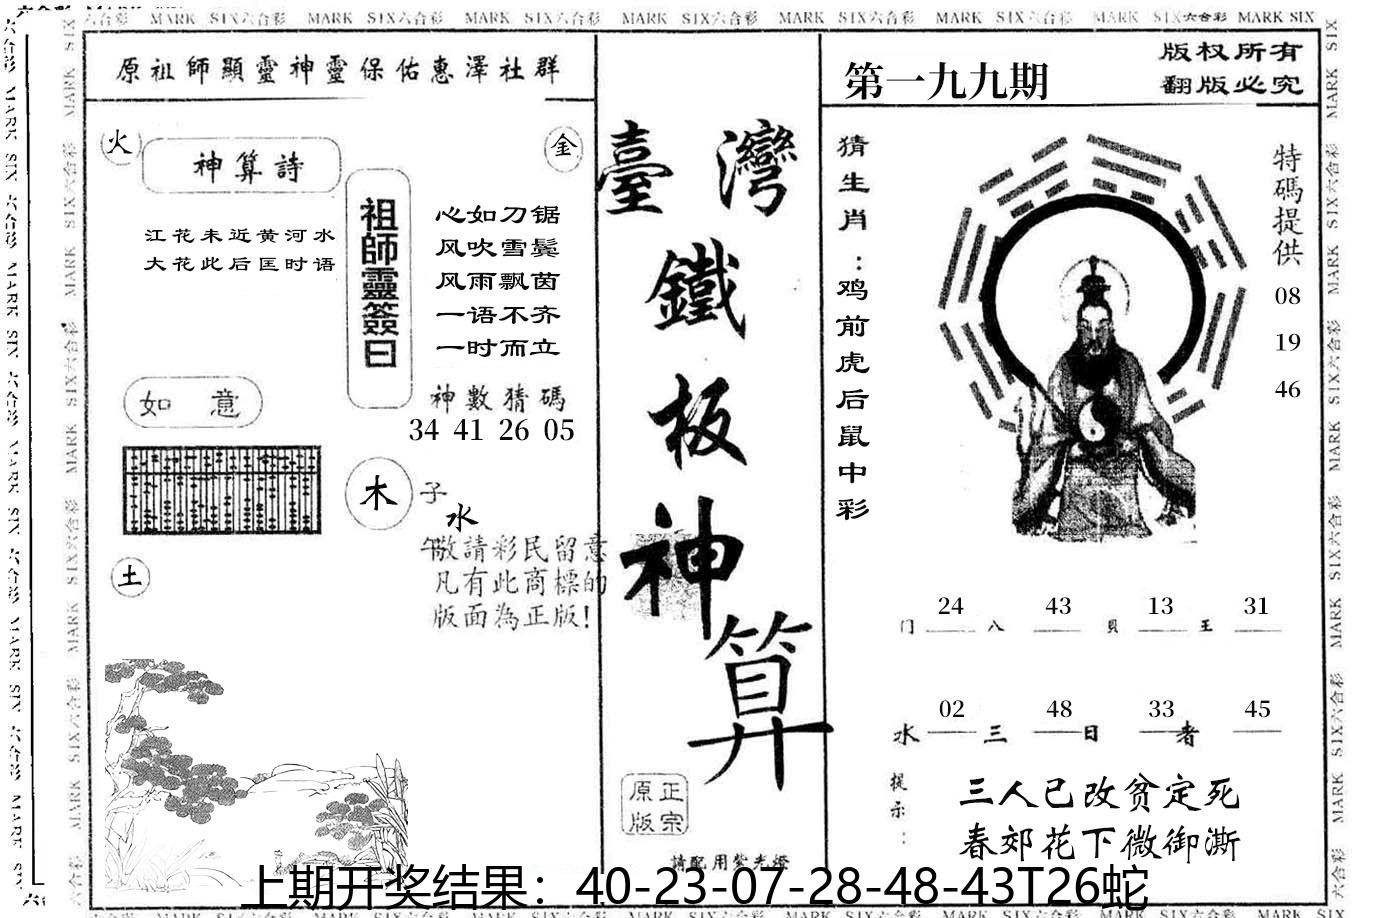 MARK SIX六合彩 MARK SIX六合彩 MARK SIX六合彩 MARK SIX六合彩 MARK SIX六合彩 MARK SIX六合彩 MARK SIX六合彩 MARK SIX
原祖師顯靈神靈保佑惠澤社群
火
金
神算詩
江花未近黄河水
大花此后匡时语
祖師靈簽曰
心如刀锯
风吹雪鬓
风雨飘茵
一语不齐
一时而立
神數猜碼
34 41 26 05
如意
木
子
水
午
土
敬請彩民留意
凡有此商標的
版面為正版!
臺灣
鐵
板
神
算
正宗
原版
請配用紫光燈
第一九九期
版权所有
翻版必究
猜生肖:鸡前虎后鼠中彩
特碼提供
08
19
46
24 43 13 31
门 八 贝 王
02 48 33 45
水 三 日 者
提示:
三人已改贫定死
春郊花下微御澌
上期开奖结果：40-23-07-28-48-43T26蛇